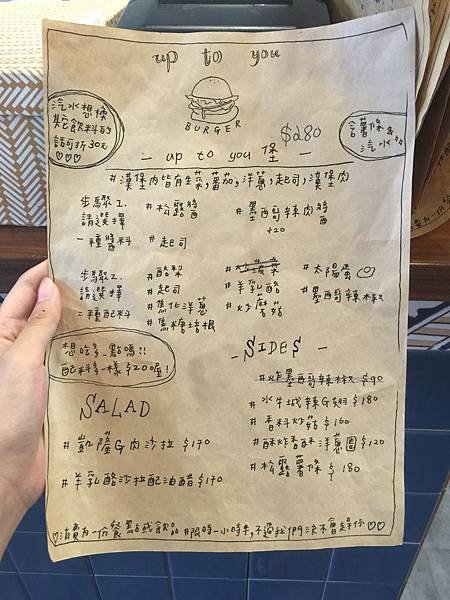 up to you
BURGER
汽水想換
其它飲料的
話可折30元
♡♡♡
$280
含薯條&
汽水
— up to you 堡 —
#漢堡肉皆有生菜,蕃茄,洋蔥,起司,漢堡肉
步驟1.
請選擇
一種醬料
#松露醬
#起司
#墨西哥辣肉醬
+20
步驟2.
請選擇
二種配料
#酪梨
#起司
#焦化洋蔥
#焦糖培根
#羊乳酪
#炒蘑菇
#太陽蛋
#墨西哥辣椒
想吃多一點嗎!!
配料多一樣$20喔!
— SIDES —
#炸墨西哥辣椒 $90
#水牛城辣G翅 $180
#香料炒菇 $160
#酥炸香酥洋蔥圈 $120
#松露薯條 $180
SALAD
#凱薩G肉沙拉 $170
#羊乳酪沙拉配油醋 $170
♡消費為一份餐點或飲品 #限時一小時半,不過我們決不會趕你♡♡